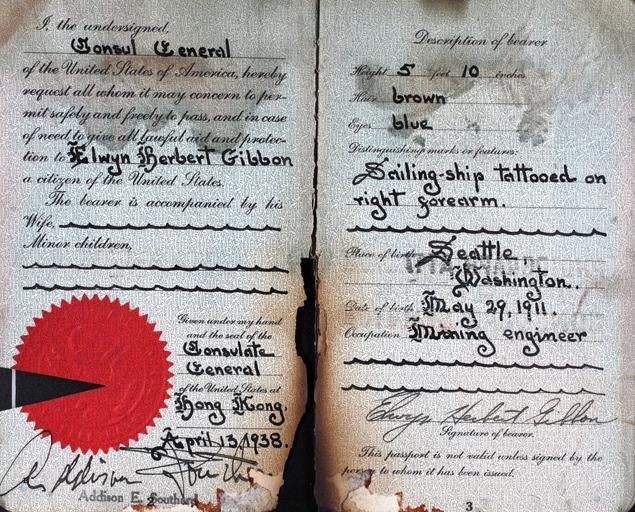 I, the undersigned,
Consul General
of the United States of America, hereby
request all whom it may concern to per-
mit safely and freely to pass, and in case
of need to give all lawful aid and protec-
tion to Elwyn Herbert Gibbon
a citizen of the United States.
The bearer is accompanied by his
Wife,
Minor children,
Given under my hand
and the seal of the
Consulate
General
of the United States at
Hong Kong.
April 13, 1938.
Addison E. Southard
Description of bearer
Height 5 feet 10 inches
Hair brown
Eyes blue
Distinguishing marks or features:
Sailing-ship tattooed on
right forearm.
Place of birth Seattle,
Washington.
Date of birth May 29, 1911.
Occupation Mining engineer
Elwyn Herbert Gibbon
Signature of bearer.
This passport is not valid unless signed by the
person to whom it has been issued.
3